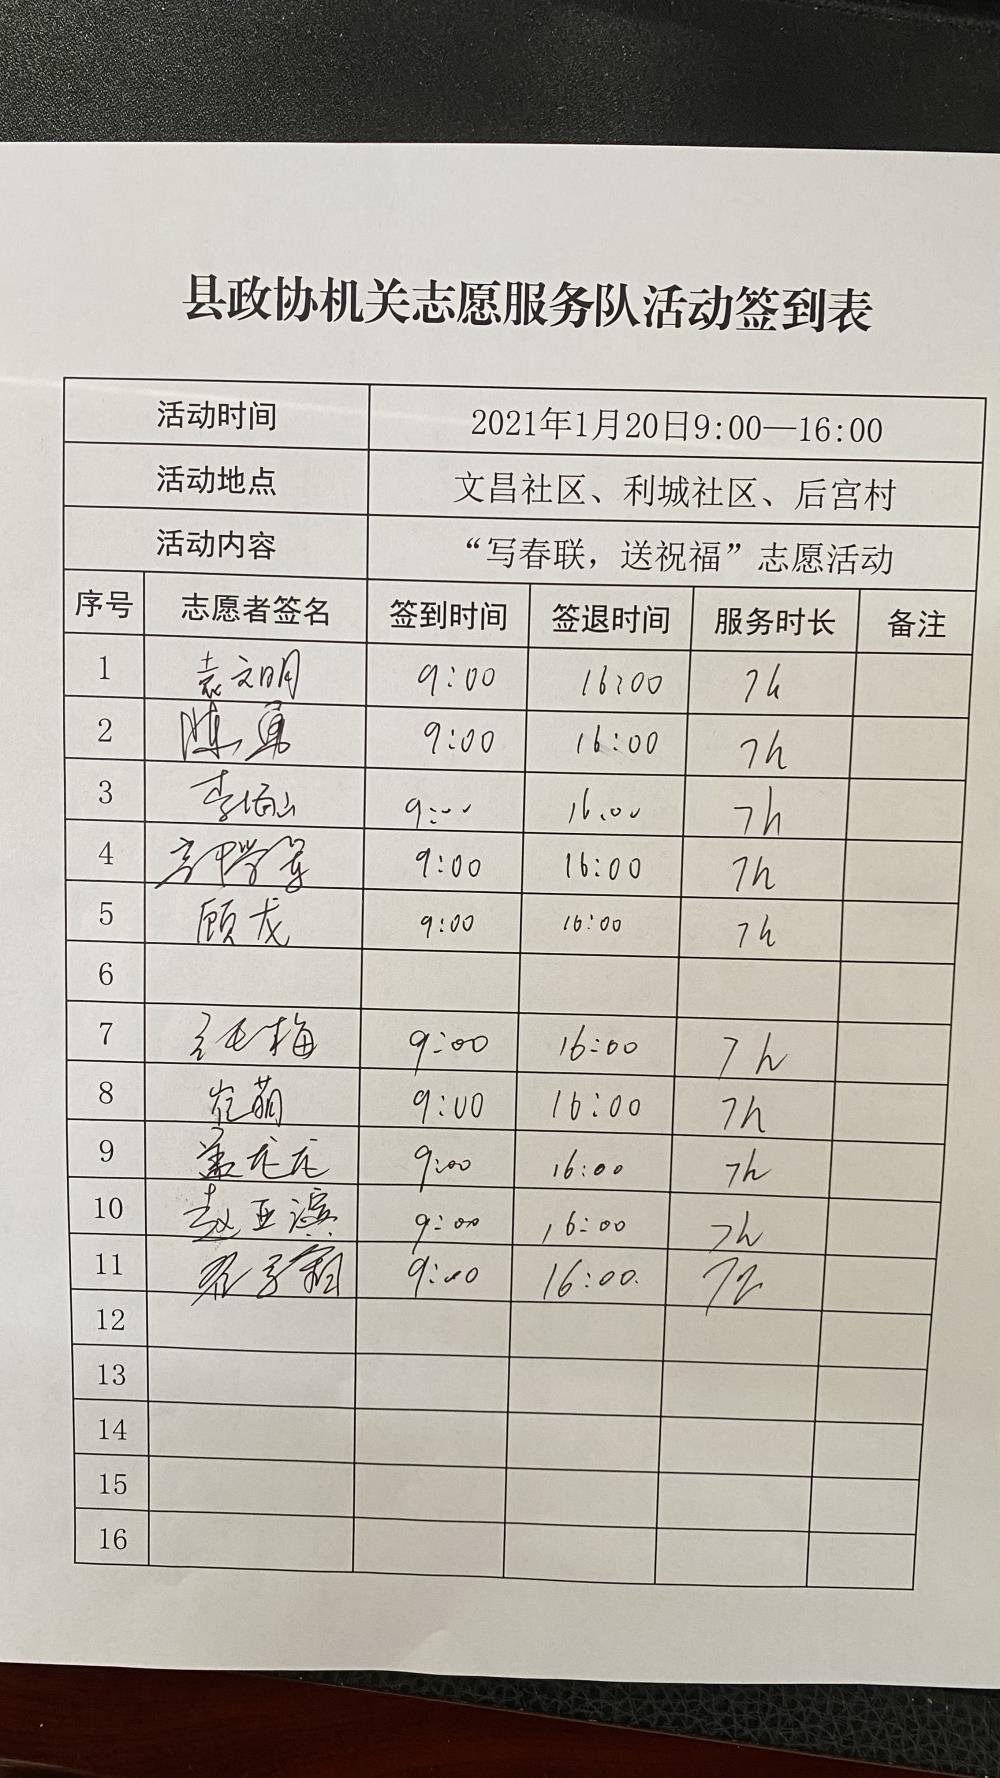 县政协机关志愿服务队活动签到表
活动时间 2021年1月20日9:00—16:00
活动地点 文昌社区、利城社区、后宫村
活动内容 “写春联，送祝福”志愿活动
序号 志愿者签名 签到时间 签退时间 服务时长 备注
1 袁文明 9:00 16:00 7h
2 陈勇 9:00 16:00 7h
3 9:00 16:00 7h
4 9:00 16:00 7h
5 顾龙 9:00 16:00 7h
6
7 9:00 16:00 7h
8 崔萌 9:00 16:00 7h
9 9:00 16:00 7h
10 赵亚滨 9:00 16:00 7h
11 9:00 16:00 7h
12
13
14
15
16